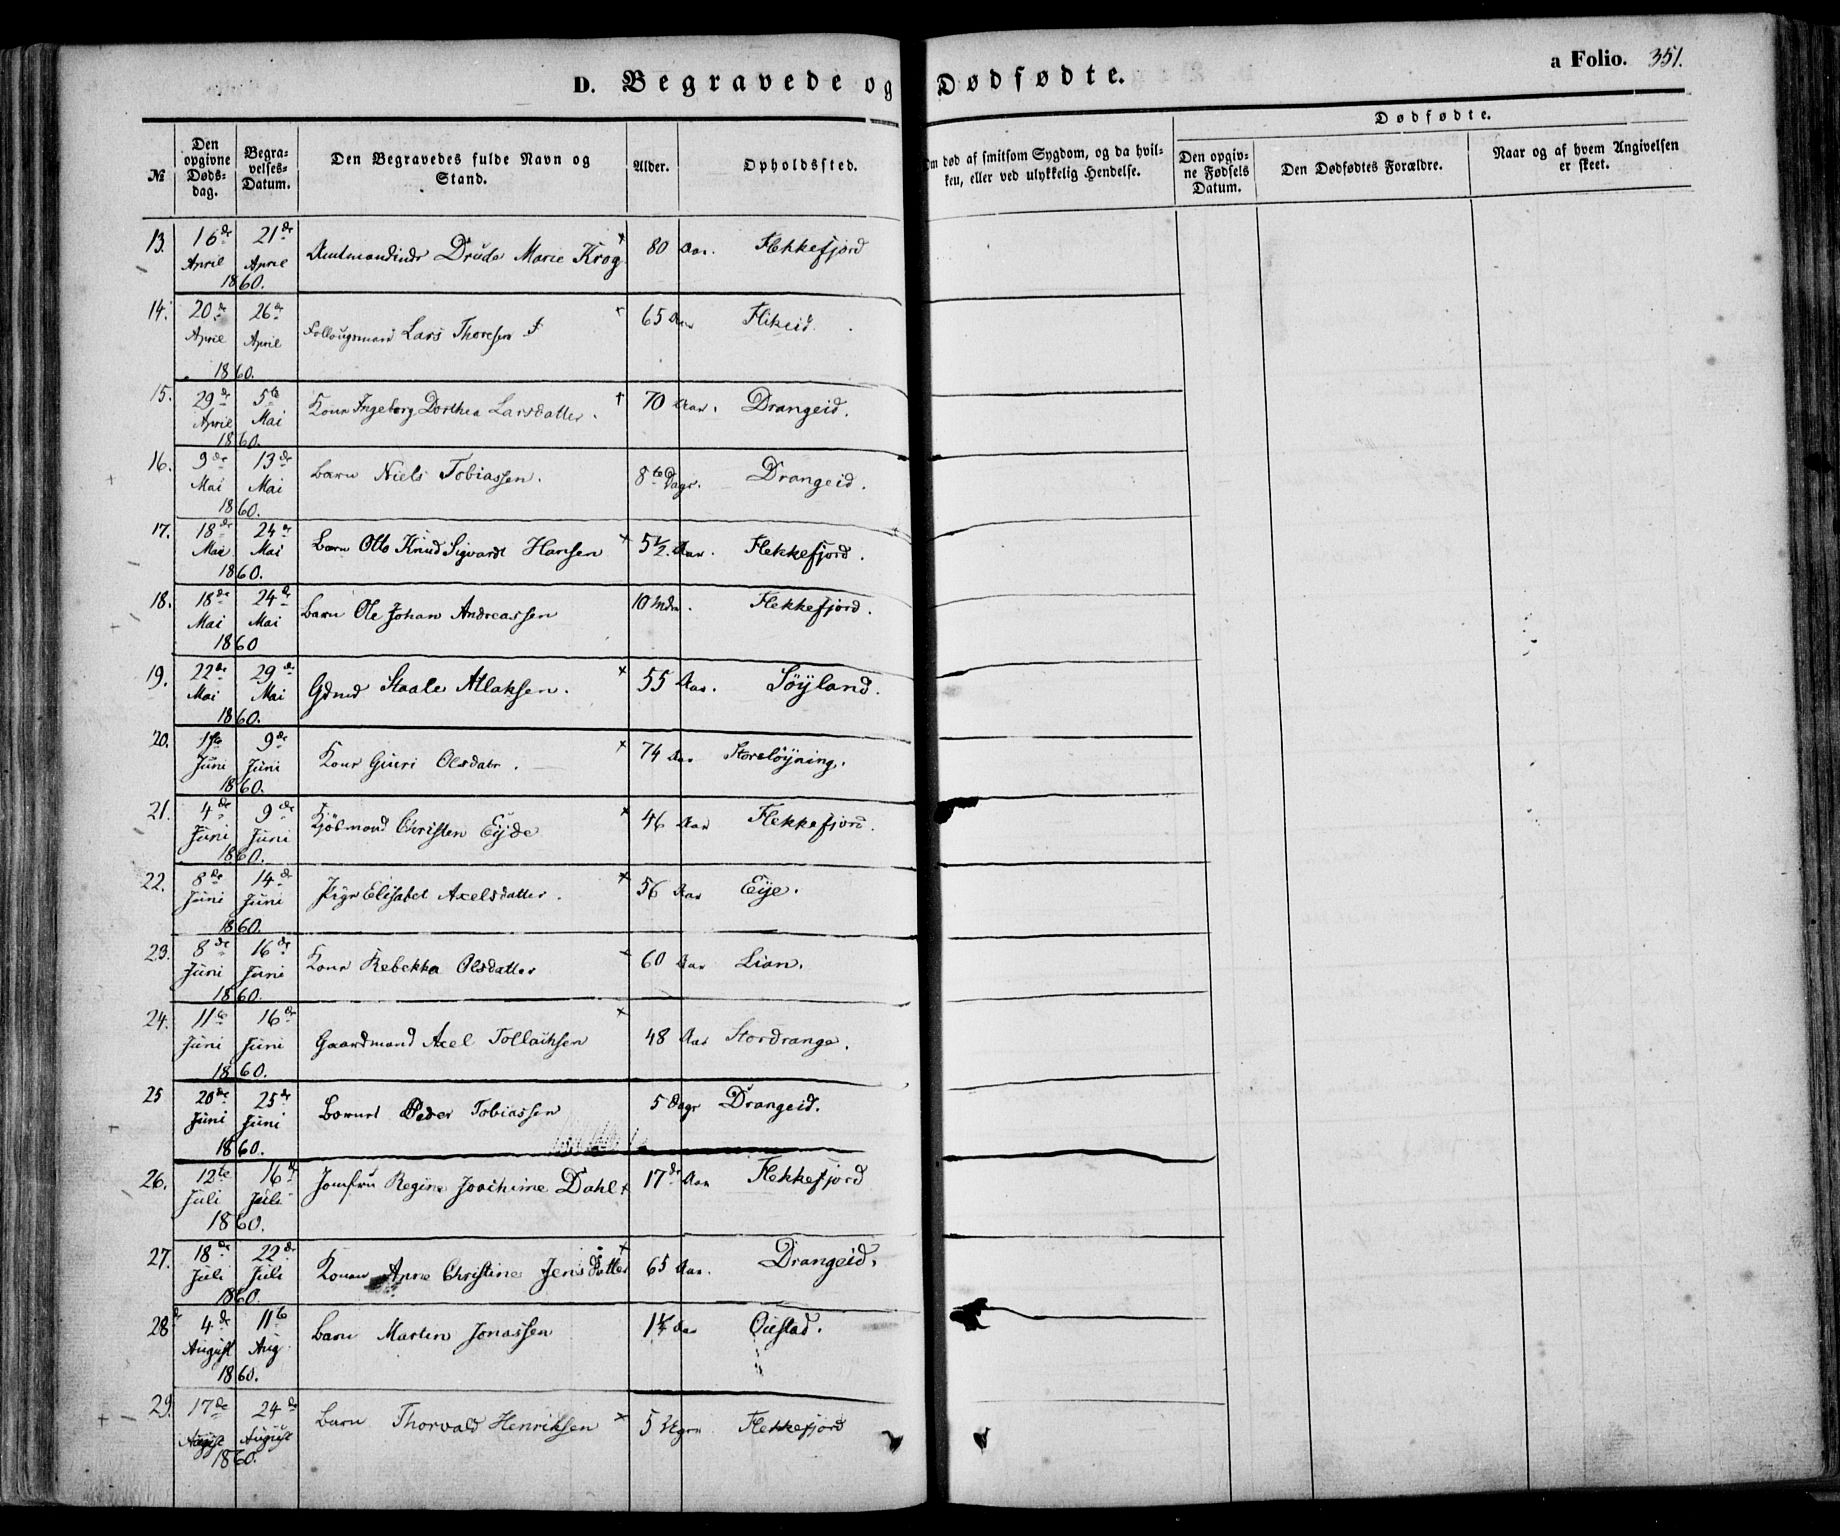 D. Begravede og Dødfødte.
a Folio. 351.
Dødfødte.
№
Den opgivne Døds-dag.
Begra-velses-Datum.
Den Begravedes fulde Navn og Stand.
Alder.
Opholdssted.
Om død af smitsom Sygdom, og da hvil-ken, eller ved ulykkelig Hendelse.
Den opgiv-ne Fødsels Datum.
Den Dødfødtes Forældre.
Naar og af hvem Angivelsen er skeet.
13. 16de April 21de April 1860. Amtmandinde Drude Marie Krog 80 Aar. Flekkefjord
14. 20de April 26de April 1860. Lars Thoresen 65 Aar Flikeid.
15. 29de April 5te Mai 1860. Kone Ingeborg Dorthea Larsdatter. 70 Aar. Drangeid.
16. 9de Mai 13de Mai 1860. Barn Niels Tobiassen. 8te Dage. Drangeid.
17. 18de Mai 24de Mai 1860. Barn Otto Knud Sigvardt Hansen 5½ Aar. Flekkefjord.
18. 18de Mai 24de Mai 1860 Barn Ole Johan Andreassen 10 Mdr. Flekkefjord.
19. 22de Mai 29de Mai 1860. Gdmd Staale Atlaksen. 55 Aar. Söyland.
20. 1ste Juni 9de Juni 1860. Kone Guri Olsdatr. 74 Aar Storeløyning.
21. 4de Juni 9de Juni 1860. Kjöbmand Christen Eyde 46 Aar Flekkefjord.
22. 8de Juni 14de Juni 1860. Pige Elisabet Axelsdatter. 56 Aar Eije.
23. 8de Juni 16de Juni 1860. Kone Rebekka Olsdatter 60 Aar Lian.
24. 11te Juni 16de Juni 1860. Gaardmand Axel Tollaksen 48 Aar Stordrange.
25 20de Juni 25de Juni 1860. Barnet Peder Tobiassen 5 Dage Drangeid.
26. 12te Juli 16de Juli 1860. Jomfru Regine Joachime Dahl 17de Aar Flekkefjord
27. 18de Juli 22de Juli 1860. Konen Anne Christine Jensdatter 65 Aar. Drangeid.
28 4de August 11te Aug. 1860. Barn Martin Jonassen Aar Oustad.
29. 17de August 24de August 1860. Barn Thorvald Henriksen 5 Uger Flekkefjord